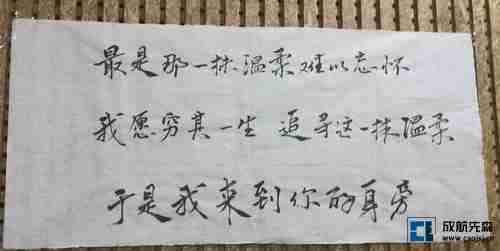 最是那一抹温柔难以忘怀
我愿穷其一生 追寻这一抹温柔
于是我来到你的身旁
成航先森